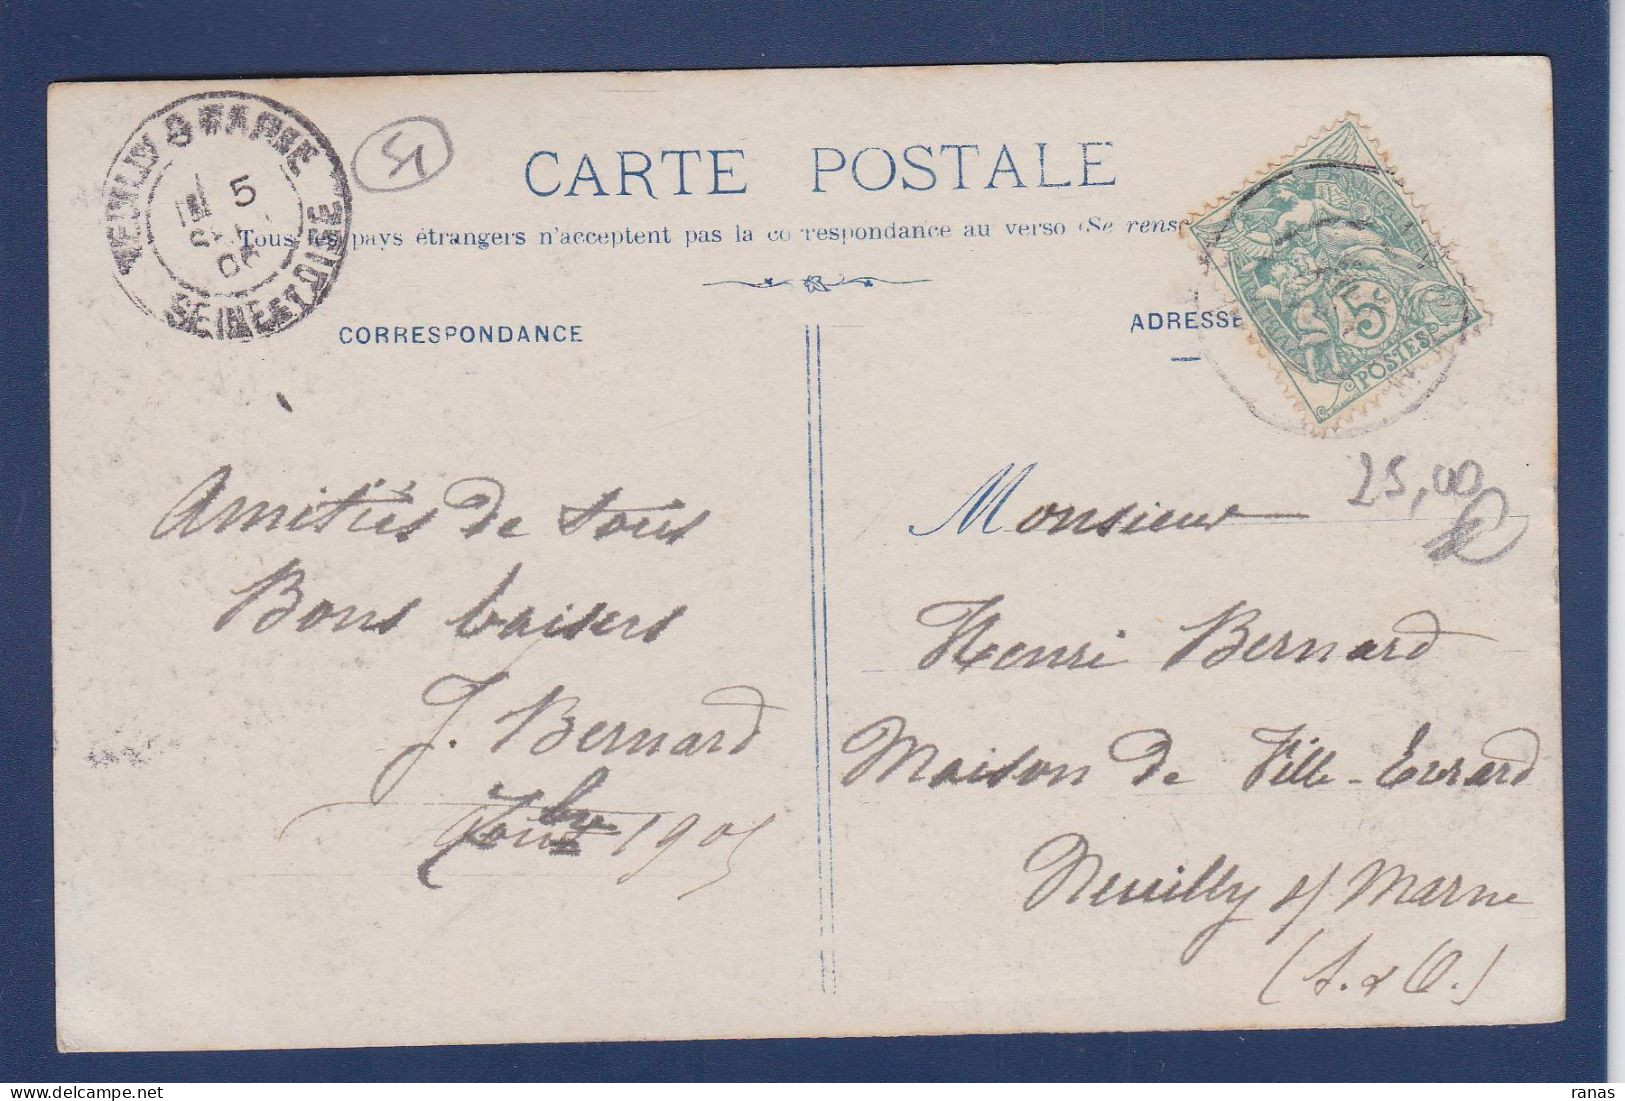 NEUILLY S MARNE
5
SEINE ET OISE
51
CARTE POSTALE
Tous les pays étrangers n'acceptent pas la correspondance au verso (Se rens
CORRESPONDANCE
ADRESSE
5
POSTES
25,00
Amitiés de tous
Bons baisers
J. Bernard
1905
Monsieur
Henri Bernard
Maison de Ville-Evrard
Neuilly s/ Marne
(S. & O.)
ranas